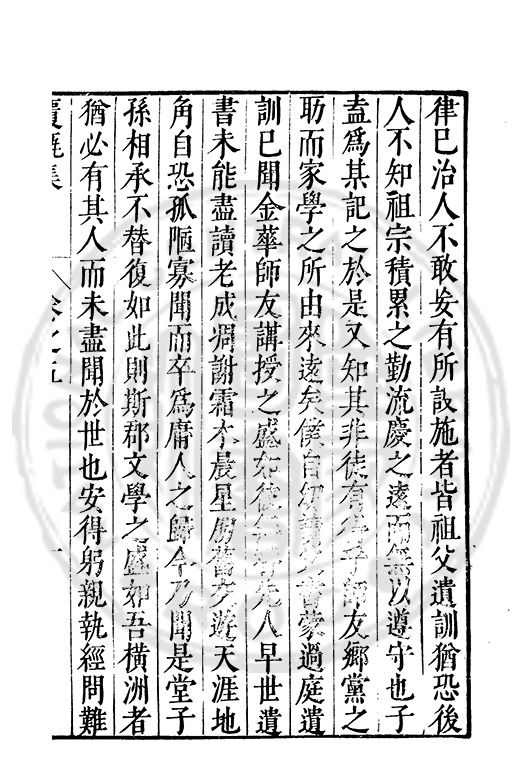 律已治人不敢妄有所設施者皆祖父遺訓猶恐後
人不知祖宗積累之勤流慶之遠而無以遵守也子
盍爲某記之於是又知其非徒有得于師友鄉黨之
助而家學之所由來遠矣僕自幼讀父書蒙過庭遺
訓已聞金華師友講授之盛先人早世遺
書未能盡讀老成凋謝霜木晨星朋舊交遊天涯地
角自恐孤陋寡聞而卒爲庸人之歸今乃聞是堂子
孫相承不替復如此則斯郡文學之盛如吾橫洲者
猶必有其人而未盡聞於世也安得躬親執經問難
覆瓿集
卷之五